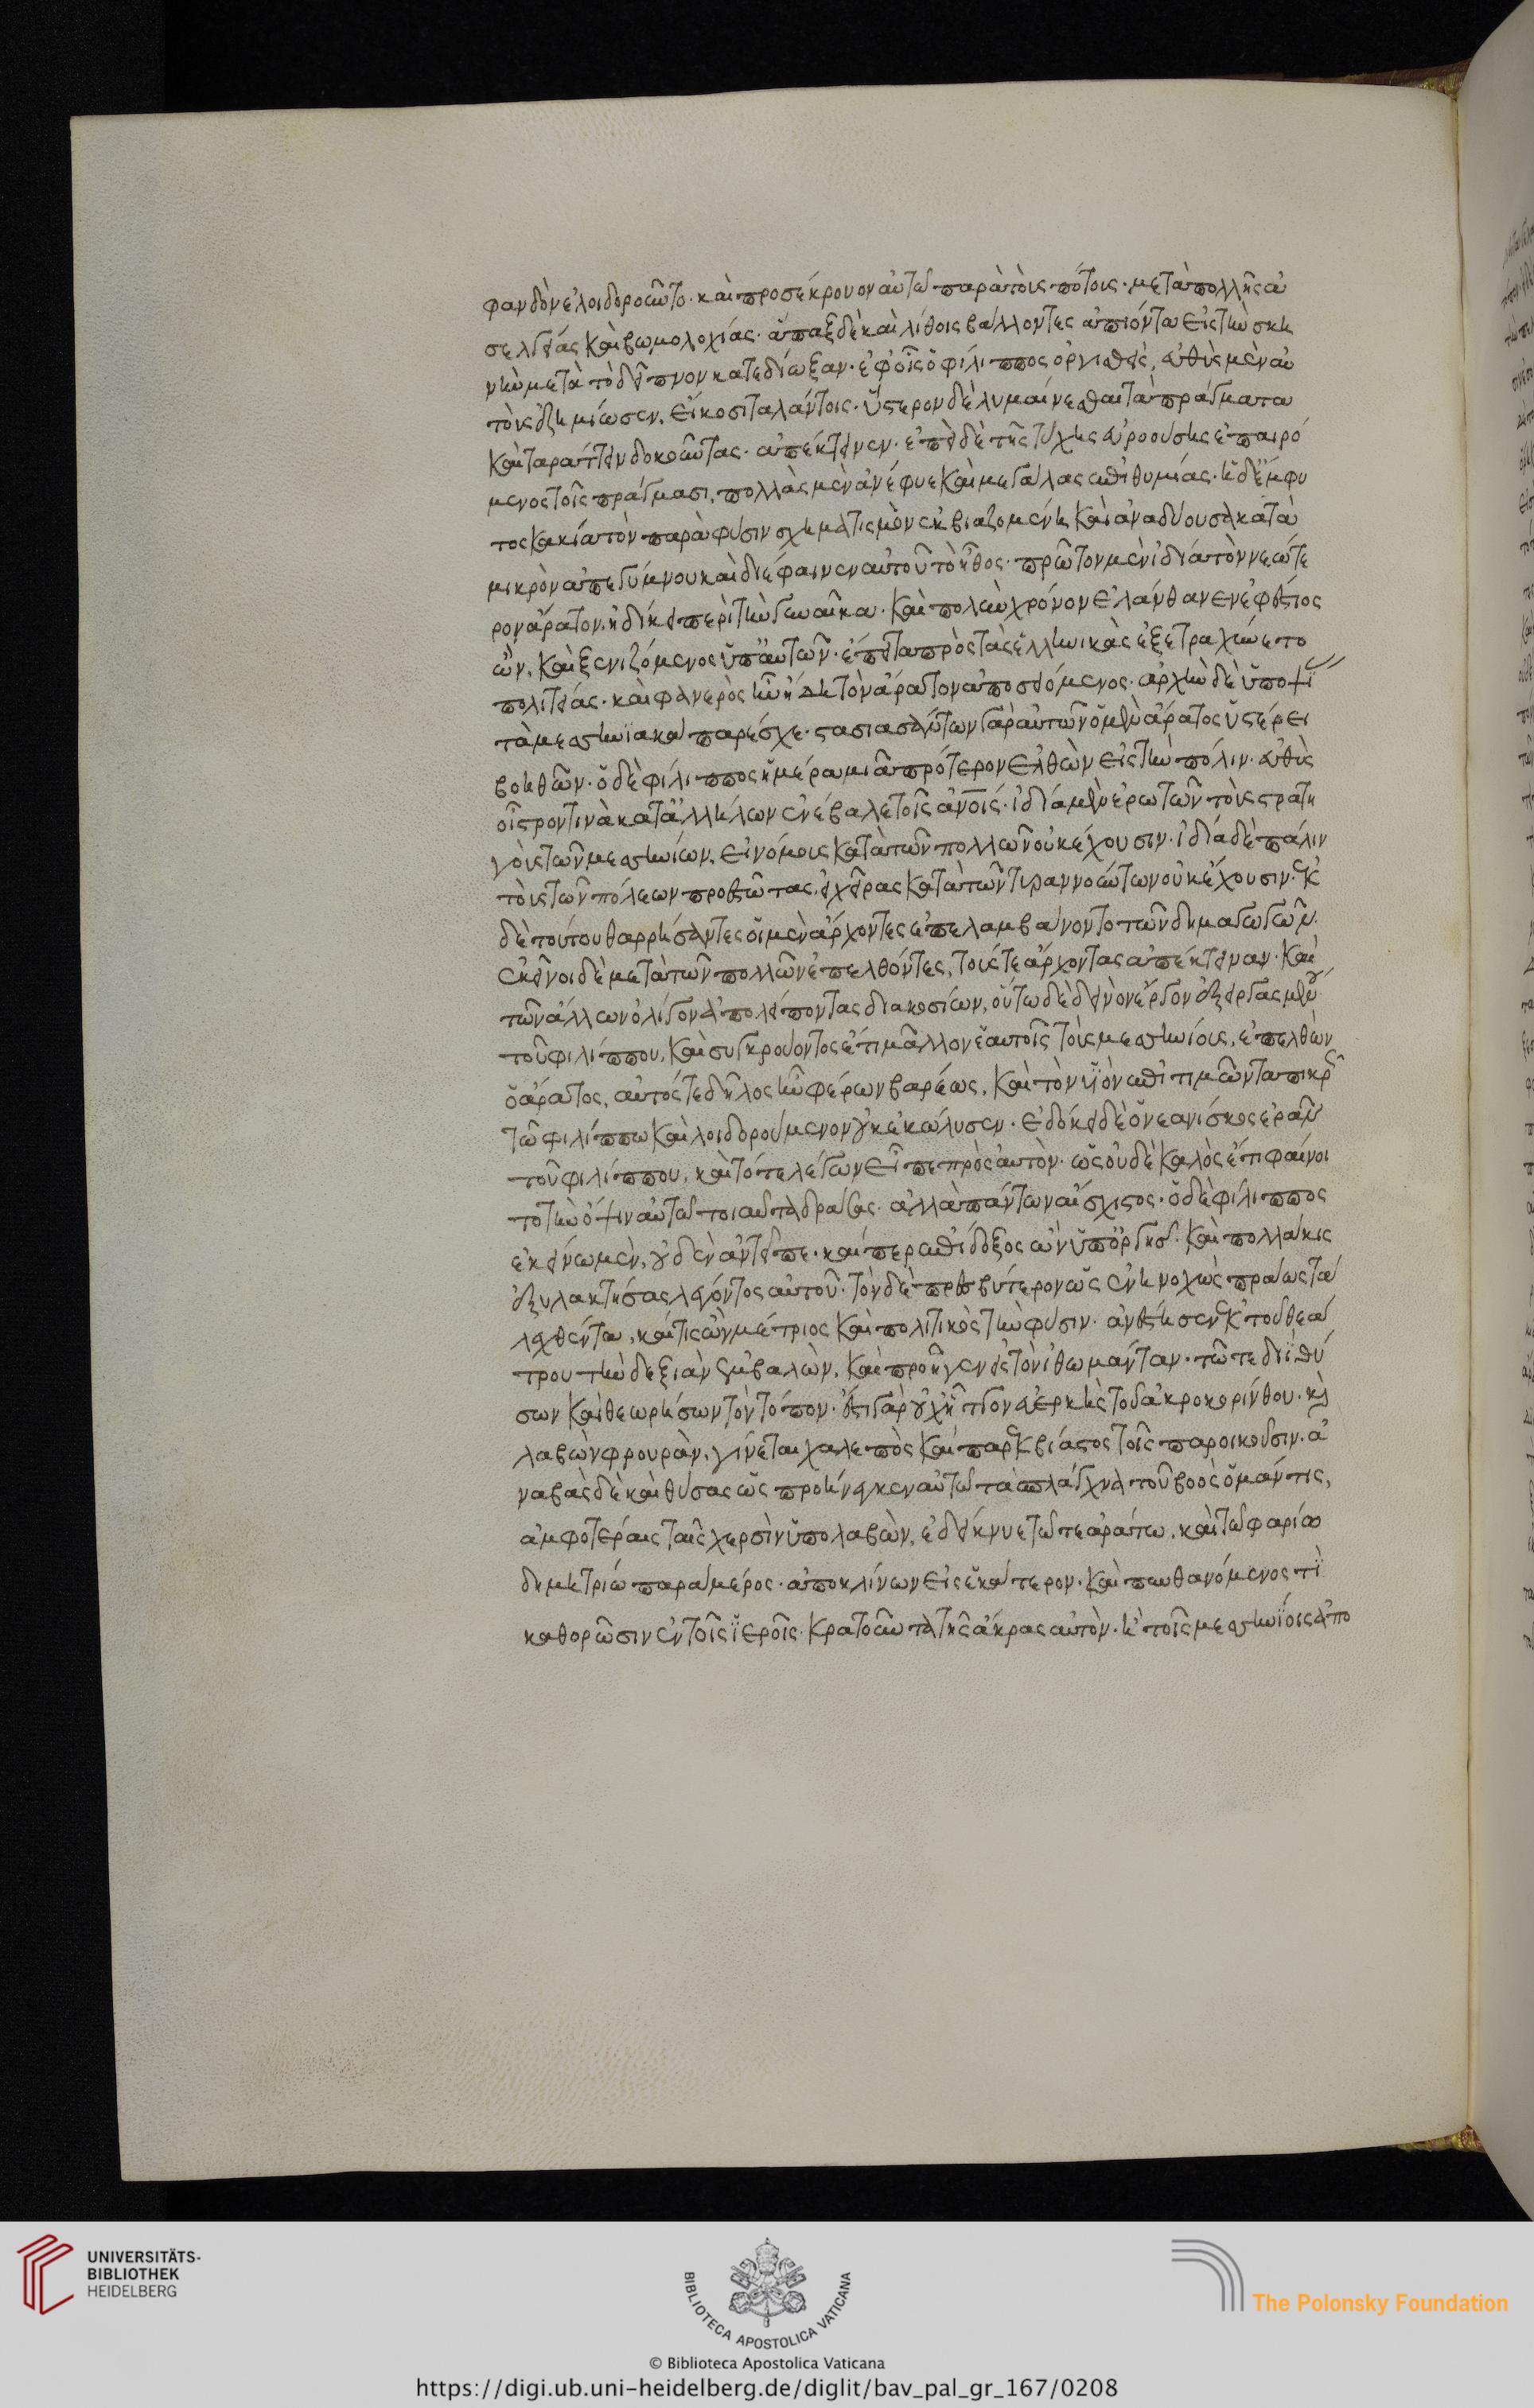 φανδὸν ἐλοιδοροῦντο· καὶ προσέκρουον αὐτῶ παρὰ τοὺς πότους· μετὰ πολλῆς ἀ
σελγείας καὶ βωμολοχίας· ἅπαξ δὲ καὶ λίθοις βάλλοντες ἀπιόντα εἰς τὴν σκη
νὴν μετὰ τὸ δεῖπνον κατεδίωξαν· ἐφ' οἷς ὁ φίλιππος ὀργισθεὶς, εὐθὺς μὲν αὐ
τοὺς ἐζημίωσεν, εἴκοσι ταλάντοις· ὕστερον δὲ λυμαίνεσθαι τὰ πράγματα
καὶ ταράττειν δοκοῦντας· ἀπέκτεινεν· ἐπεὶ δὲ τῆς τύχης εὐροούσης ἐπαιρό
μενος τοῖς πράγμασι, πολλὰς μὲν ἀνέφυε καὶ μεγάλας ἐπιθυμίας· ἡ δ' ἔμφυ
τος κακία τὸν παρὰ φύσιν σχηματισμὸν ἐκβιαζομένη καὶ ἀναδύουσα κατὰ
μικρὸν ἀπεγύμνου καὶ διέφαινεν αὐτοῦ τὸ ἦθος· πρῶτον μὲν ἰδία τὸν νεώτε
ρον ἄρατον, ἠδίκει περὶ τὴν γυναῖκα· καὶ πολὺν χρόνον ἐλάνθανεν ἐφέστιος
ὢν, καὶ ξενιζόμενος ὑπ' αὐτῶν· ἔπειτα πρὸς τὰς ἑλληνικὰς ἐξετραχύνετο
πολιτείας· καὶ φανερὸς ἦν ἤδη τὸν ἄρατον ἀποσειόμενος· ἀρχὴν δὲ ὑποψί
τὰ μεσσηνιακὰ παρέσχε· στασιασάντων γὰρ αὐτῶν ὁ μὲν ἄρατος ὑστέρει
βοηθῶν· ὁ δὲ φίλιππος ἡμέρα μιᾶ πρότερον ἐλθὼν εἰς τὴν πόλιν· εὐθὺς
οἶστρόν τινα κατ' ἀλλήλων ἐνέβαλε τοῖς ἀνοις· ἰδία μὲν ἐρωτῶν τοὺς στρατη
γοὺς τῶν μεσσηνίων, εἰ νόμους κατὰ τῶν πολλῶν οὐκ ἔχουσιν· ἰδία δὲ πάλιν
τοὺς τῶν πόλεων προεστῶτας, εἰ χεῖρας κατὰ τῶν τυραννούντων οὐκ ἔχουσιν· ἐκ
δὲ τούτου θαρρήσαντες οἱ μὲν ἄρχοντες ἐπελαμβάνοντο τῶν δημαγωγῶν·
ἐκεῖνοι δὲ μετὰ τῶν πολλῶν ἐπελθόντες, τούς τε ἄρχοντας ἀπέκτειναν· καὶ
τῶν ἄλλων ὀλίγον ἀπολείποντας διακοσίων, οὕτω δὲ δεινὸν ἔργον ἐξειργασμένου
τοῦ φιλίππου, καὶ συγκρούοντος ἔτι μᾶλλον ἑαυτοῖς τοὺς μεσσηνίους, ἐπελθὼν
ὁ ἄρατος, αὐτός τε δῆλος ἦν φέρων βαρέως, καὶ τὸν υἱὸν ἐπιτιμῶντα πικρῶς
τῶ φιλίππω καὶ λοιδορούμενον οὐκ ἐκώλυσεν· ἐδόκει δὲ ὁ νεανίσκος ἐρᾶν
τοῦ φιλίππου, καὶ τότε λέγων εἶπε πρὸς αὐτὸν· ὡς οὐδὲ καλὸς ἔτι φαίνοι
το τὴν ὄψιν αὐτῶ τοιαῦτα δράσας· ἀλλὰ πάντων αἴσχιστος· ὁ δὲ φίλιππος
ἐκείνω μὲν, οὐδὲν ἀντεῖπε· καίπερ ἐπίδοξος ὢν ὑπ' ὀργῆς· καὶ πολλάκις
ἐξυλακτήσας λέγοντος αὐτοῦ· τὸν δὲ πρεσβύτερον ὡς ἐνηνοχὼς πράως τὰ
λεχθέντα, καί τις ὢν μέτριος καὶ πολιτικὸς τὴν φύσιν· ἀνέστησεν ἐκ τοῦ θεά
τρου τὴν δεξιὰν ἐμβαλὼν, καὶ προῆγεν εἰς τὸν ἰθωμάταν· τῶ τε διὶ θύ
σων καὶ θεωρήσων τὸν τόπον· ἔστι γὰρ οὐχ ἧττον εὐερκὴς τοῦ ἀκροκορίνθου· καὶ
λαβὼν φρουρὰν, γίνεται χαλεπὸς καὶ παρεκβίαστος τοῖς παροικοῦσιν· ἀ
ναβὰς δὲ καὶ θύσας ὡς προσήνεγκεν αὐτῶ τὰ σπλάγχνα τοῦ βοὸς ὁ μάντις,
ἀμφοτέραις ταῖς χερσὶν ὑπολαβὼν, ἐδείκνυε τῶ τε ἀράτω, καὶ τῶ φαρίω
δημητρίω παρὰ μέρος· ἀποκλίνων εἰς ἑκάτερον· καὶ πυνθανόμενος τί
καθορῶσιν ἐν τοῖς ἱεροῖς· κρατοῦντα τῆς ἄκρας αὐτὸν· ἢ τοῖς μεσσηνίοις ἀπο
UNIVERSITÄTS-
BIBLIOTHEK
HEIDELBERG
BIBLIOTECA APOSTOLICA VATICANA
The Polonsky Foundation
© Biblioteca Apostolica Vaticana
https://digi.ub.uni-heidelberg.de/diglit/bav_pal_gr_167/0208